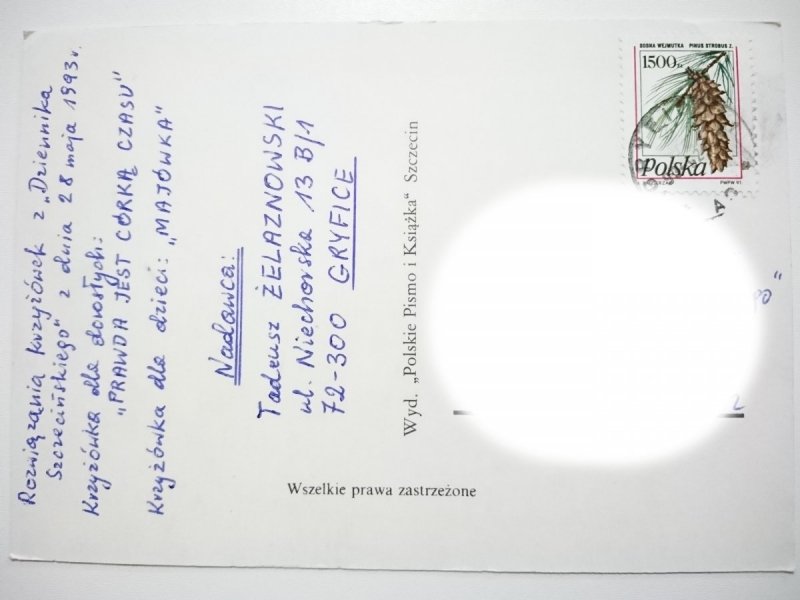 Rozwiązania krzyżówek z „Dziennika
Szczecińskiego” z dnia 28 maja 1993 r.
Krzyżówka dla dorosłych:
„PRAWDA JEST CÓRKĄ CZASU”
Krzyżówka dla dzieci: „MAJÓWKA”
Nadawca:
Tadeusz ŻELAZNOWSKI
ul. Niechorska 13 B/1
72-300 GRYFICE
Wyd. „Polskie Pismo i Książka” Szczecin
Wszelkie prawa zastrzeżone
SOSNA WEJMUTKA PINUS STROBUS Z.
1500 zł
Polska
PWPW 91.